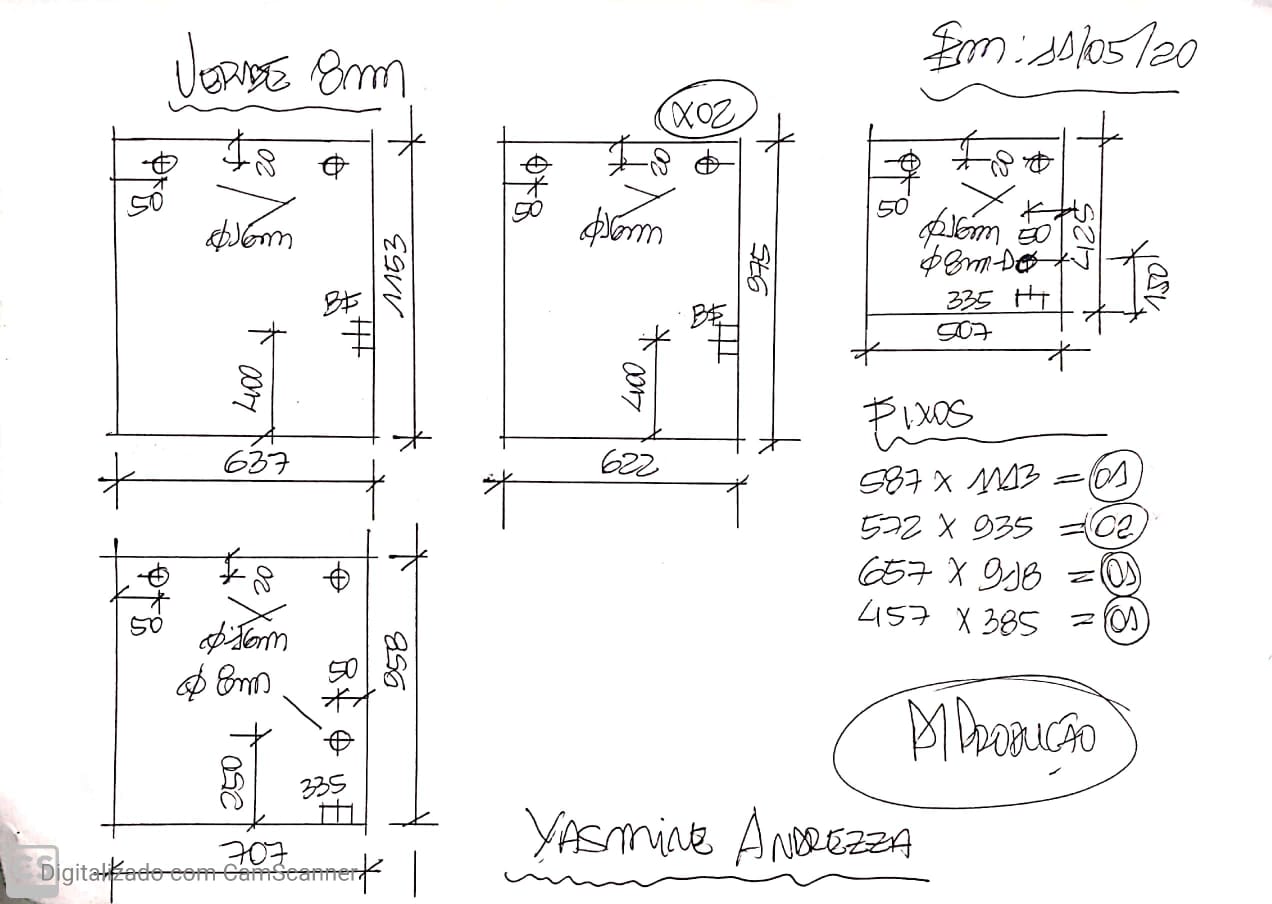 VERDE 8mm
Em: 11/05/20
X02
50
20
Ø16mm
1153
BF
400
637
50
20
Ø16mm
975
BF
400
622
50
20
Ø16mm
50
Ø8mm
335
507
425
150
FIXOS
587 X 1113 = 01
572 X 935 = 02
657 X 918 = 01
457 X 385 = 01
50
20
Ø16mm
Ø 8mm
50
958
250
335
707
PRODUÇÃO
YASMINE ANDREZZA
Digitalizado com CamScanner
CS